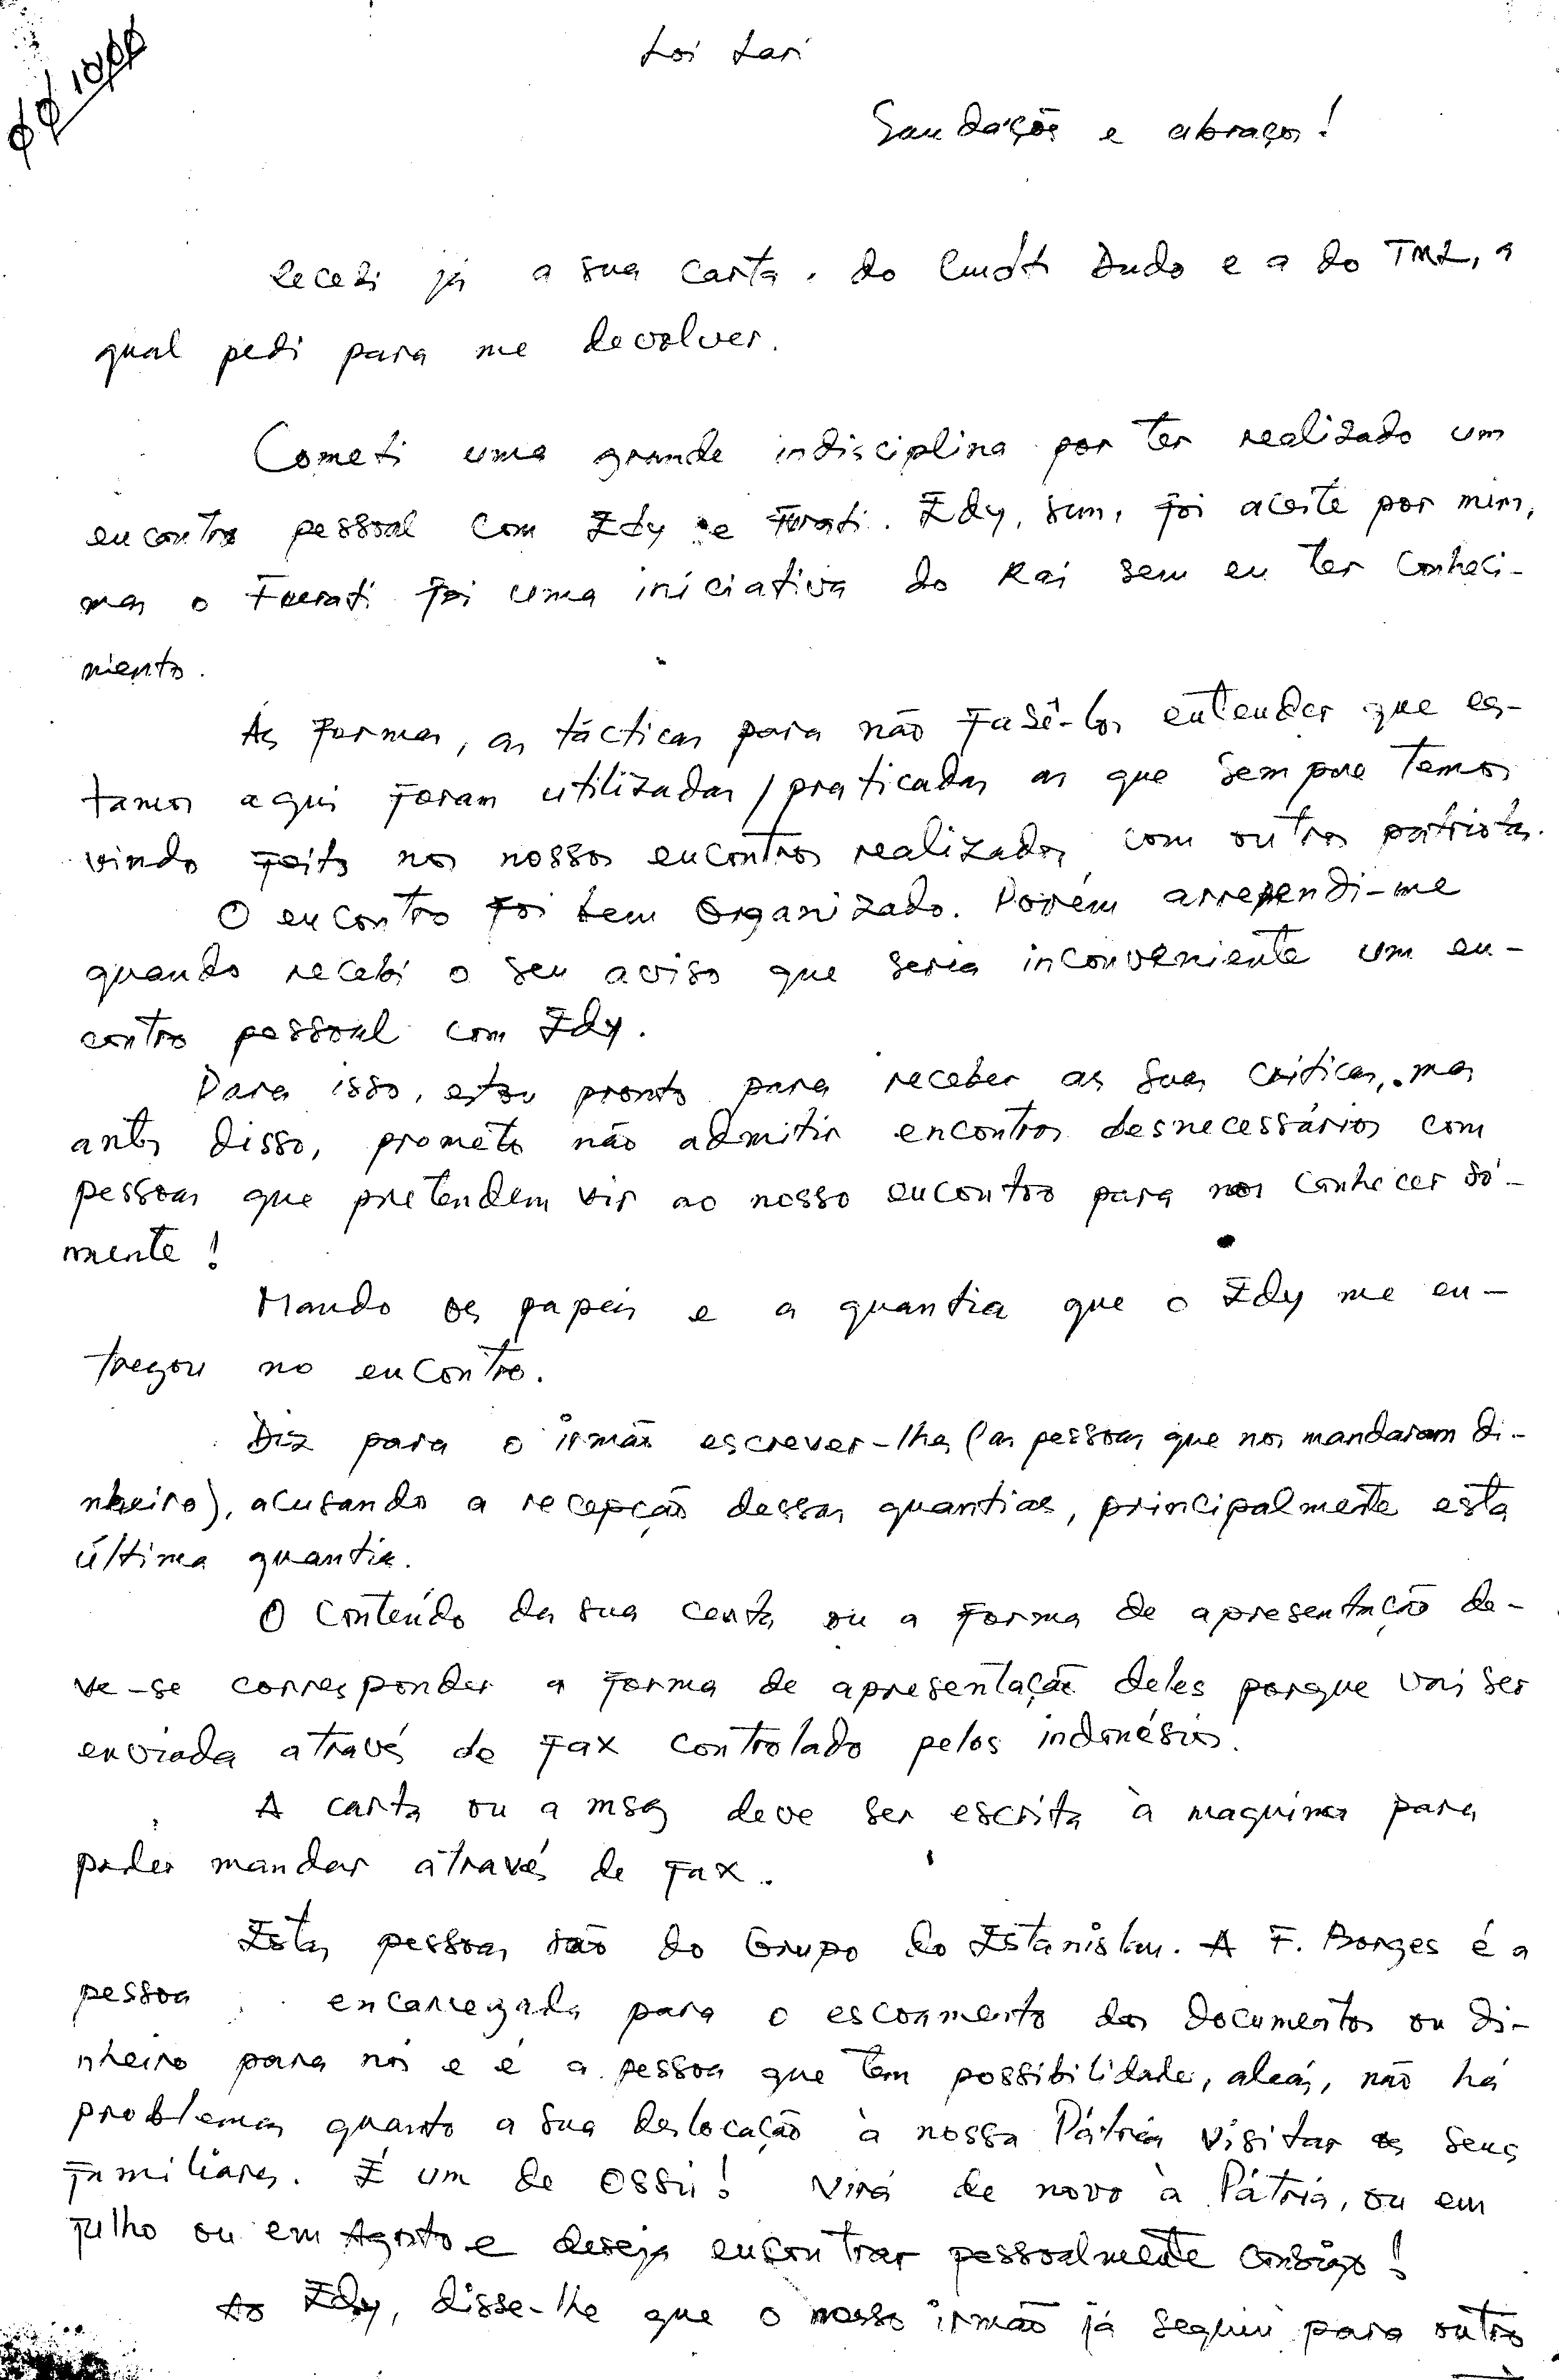 Loi Lari
Saudações e abraços!
Recebi já a sua carta, do Cmdt Dudo e a do TML, a
qual pedi para me devolver.
Cometi uma grande indisciplina por ter realizado um
encontro pessoal com Edy e Ferati. Edy, sim, foi aceite por mim,
mas o Ferati foi uma iniciativa do Rai sem eu ter conheci-
mento.
As formas, as tácticas para não fasê-los entender que es-
tamos aqui foram utilizadas / praticadas as que sempre temos
vindo feito nos nossos encontros realizados com outros patriotas.
O encontro foi bem organizado. Porém arrependi-me
quando recebi o seu aviso que seria inconveniente um en-
contro pessoal com Edy.
Para isso, estou pronto para receber as suas críticas, mas
antes disso, prometo não admitir encontros desnecessários com
pessoas que pretendem vir ao nosso encontro para nos conhecer sò-
mente!
Mando os papeis e a quantia que o Edy me en-
tregou no encontro.
Diz para o irmão escrever-lhes (as pessoas que nos mandaram di-
nheiro), acusando a recepção dessas quantias, principalmente esta
última quantia.
O conteúdo da sua carta ou a forma de apresentação de-
ve-se corresponder a forma de apresentação deles porque vai ser
enviada através de fax controlado pelos indonésios.
A carta ou a msg deve ser escrita à maquina para
poder mandar através de fax.
Estas pessoas são do Grupo do Estanislau. A F. Borges é a
pessoa encarregada para o escoamento dos documentos ou di-
nheiro para nós e é a pessoa que tem possibilidade, aleás, não há
problemas quanto a sua deslocação à nossa Pátria visitar os seus
familiares. É um de Ossú! Virá de novo à Pátria, ou em
Julho ou em Agosto e deseja encontrar pessoalmente consigo!
Ao Edy, disse-lhe que o nosso irmão já seguiu para outro